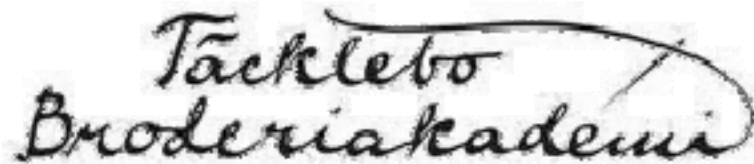 Täcklebo
Broderiakademi